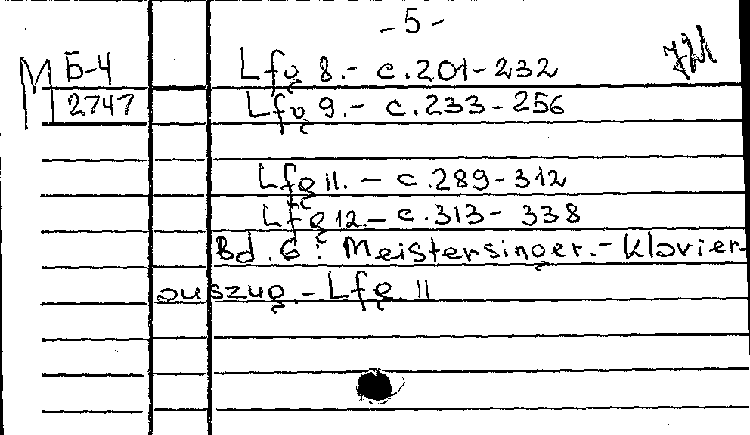 -5-
М Б-4
2747
Lfg 8.- c.201-232
Lfg 9.- c.233-256
Lfg 11. - c.289-312
Lfg 12.- c.313- 338
Bd. 6: Meistersinger.- Klavier-
auszug.- Lfg. 11